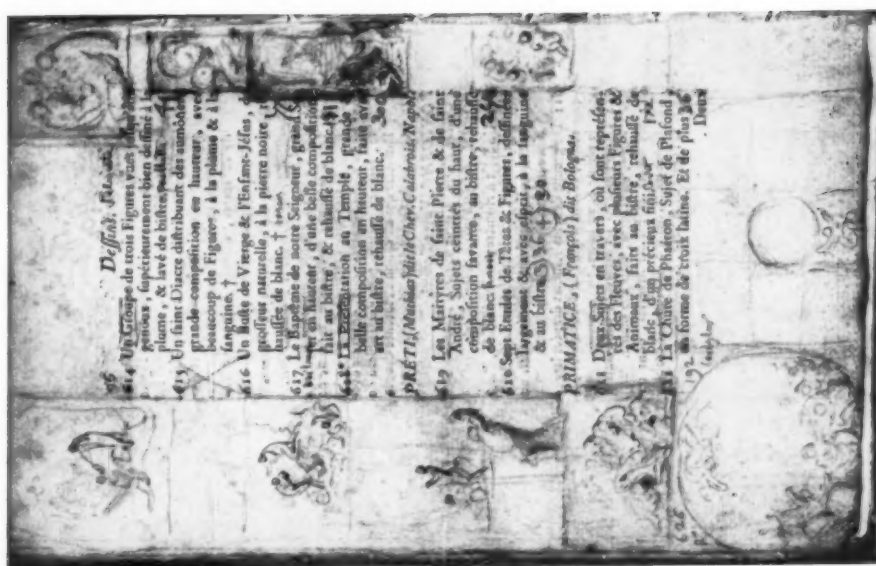 Dessins.
614 Un Groupe de trois Figures vues
genoux, supérieurement bien dessiné à la
plume, & lavé de bistre,
615 Un saint Diacre distribuant des aumônes,
grande composition en hauteur, avec
beaucoup de Figures, à la plume & à la
sanguine. †
616 Un Buste de Vierge & l'Enfant-Jésus, de
grosseur naturelle, à la pierre noire,
haussée de blanc. †
617 Le Baptême de notre Seigneur, grand
en hauteur, d'une belle composition
fait au bistre, & rehaussé de blanc.
La Présentation au Temple, grande &
belle composition en hauteur, faite avec
art au bistre, rehaussé de blanc.
PRÉTI, (Mathias) dit le Cher. Calabrois, Naples.
Les Martyres de saint Pierre & de saint
André, Sujets ceintrés du haut, d'une
composition savante, au bistre, rehaussé
de blanc.
610 Sept Etudes de Têtes & Figures, dessinées
largement & avec esprit, à la sanguine
& au bistre. 30.
PRIMATICE, (François) du Bologne.
611 Deux Sujets en travers, où sont représen-
tés des Fleuves, avec plusieurs Figures &
Animaux, faits au bistre, rehaussé de
blanc, d'un précieux fini.
La Chute de Phaéton, Sujet de Plafond,
en forme de croix latine. Et de plus
Deux
192